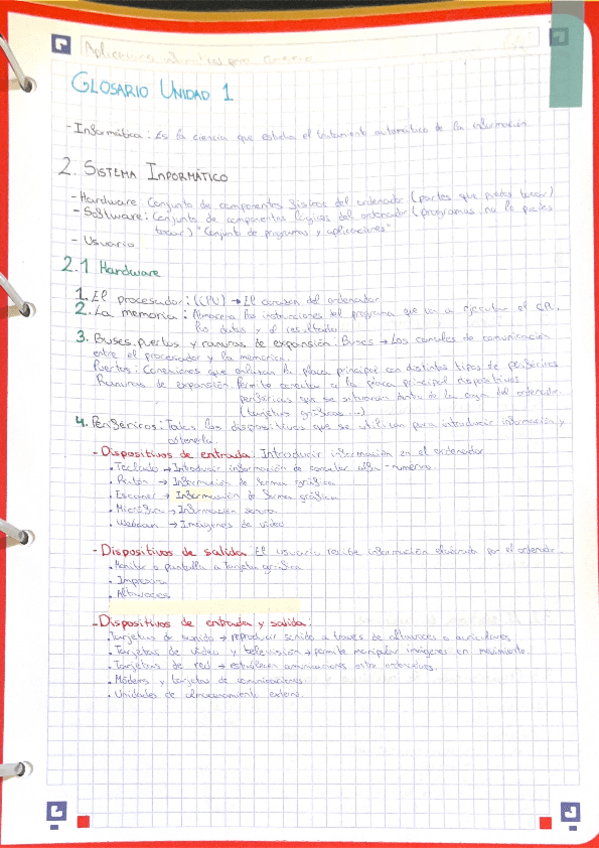 Aplicaciones
GLOSARIO UNIDAD 1
- Informática: Es la ciencia que estudia el tratamiento automático de la información.
2. SISTEMA INFORMÁTICO
- Hardware: Conjunto de componentes físicos del ordenador (partes que puedes tocar)
- Software: Conjunto de componentes lógicos del ordenador (programas, no lo puedes
tocar) "Conjunto de programas y aplicaciones"
- Usuario
2.1 Hardware
1. El procesador: (CPU) → El corazón del ordenador
2. La memoria: Almacena las instrucciones del programa que va a ejecutar el
los datos y el resultado
3. Buses, puertos y ranuras de expansión: Buses → Los canales de comunicación
entre el procesador y la memoria.
Puertos: Conexiones que enlazan la placa principal con distintos tipos de periféricos
Ranuras de expansión: Permite conectar a la placa principal dispositivos
periféricos que se situarán dentro de la caja del ordenador
(tarjetas gráficas ...)
4. Periféricos: Todos los dispositivos que se utilizan para introducir información y
obtenerla.
- Dispositivos de entrada: Introducir información en el ordenador
• Teclado → Introducir información de carácter alfa-numérico
• Ratón → Información de forma gráfica
• Escáner → Información de forma gráfica
• Micrófono → Información sonora
• Webcam → Imágenes de vídeo
- Dispositivos de salida: El usuario recibe información elaborada por el ordenador.
• Monitor o pantalla o tarjeta gráfica
• Impresora
• Altavoces
- Dispositivos de entrada y salida:
• Tarjetas de sonido → reproducir sonido a través de altavoces o auriculares.
• Tarjetas de vídeo y televisión → permite manipular imágenes en movimiento.
• Tarjetas de red → establecen comunicaciones entre ordenadores.
• Módems y tarjetas de comunicaciones.
• Unidades de almacenamiento externo.